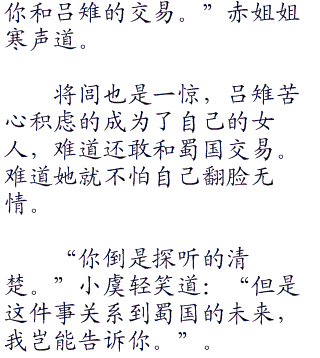 你和吕雉的交易。”赤姐姐
寒声道。
将闾也是一惊，吕雉苦
心积虑的成为了自己的女
人，难道还敢和蜀国交易。
难道她就不怕自己翻脸无
情。
“你倒是探听的清
楚。”小虞轻笑道：“但是
这件事关系到蜀国的未来，
我岂能告诉你。”。